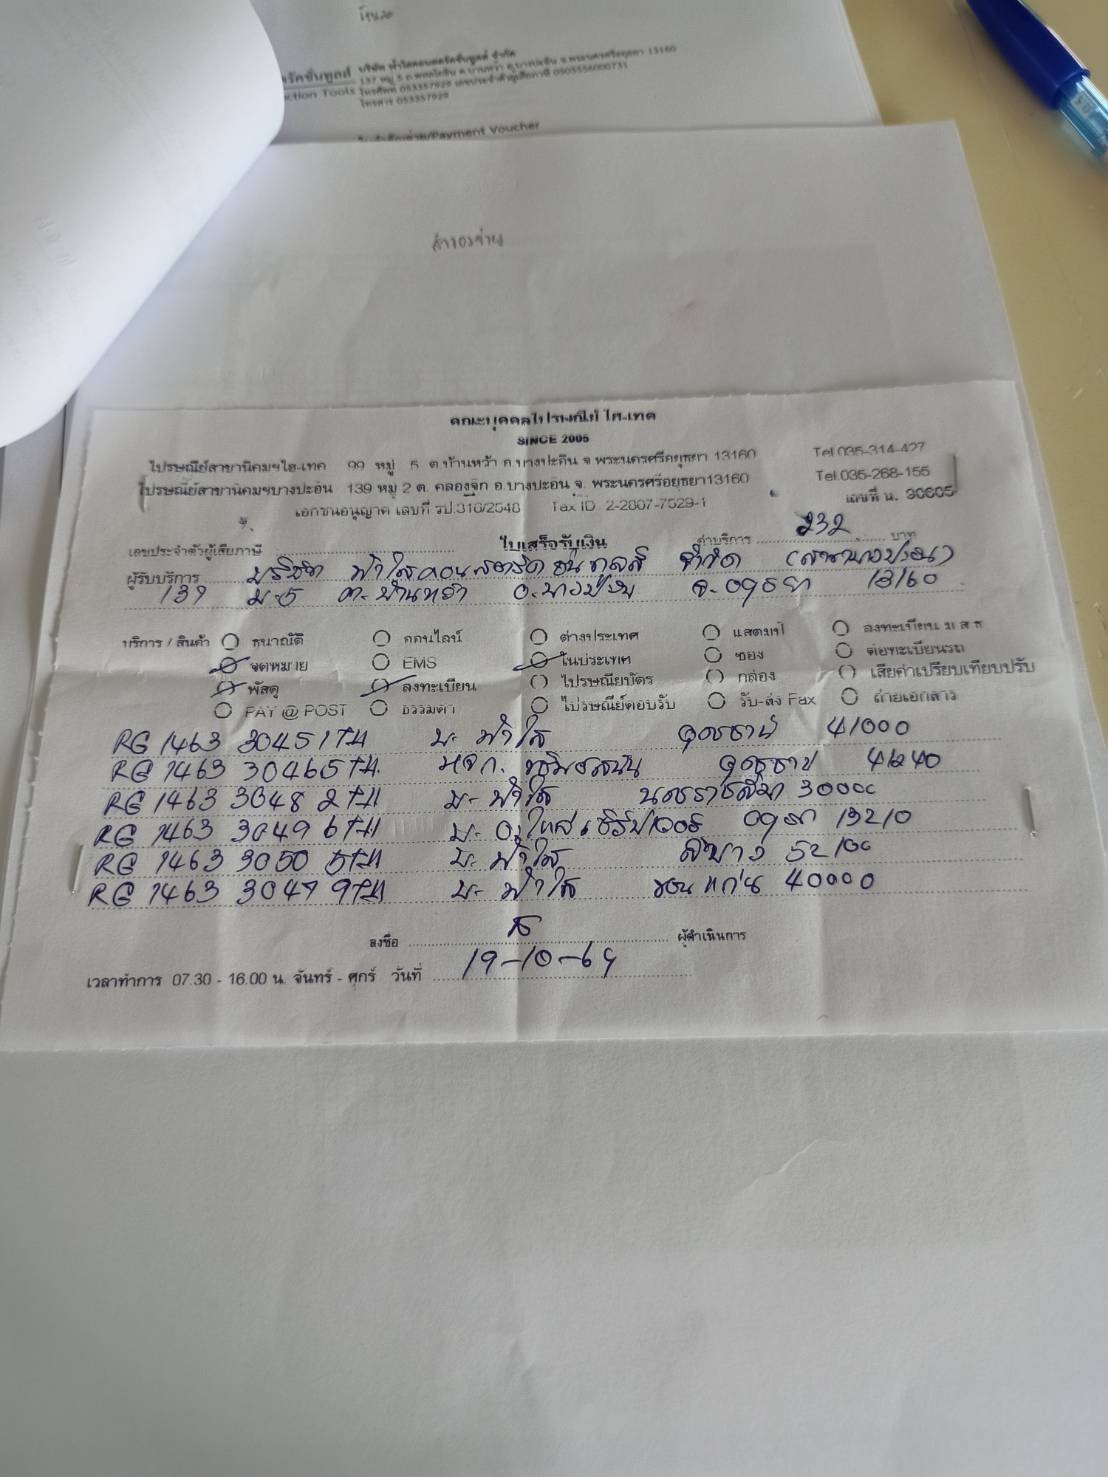 รัคชั่นทูลส์ บริษัท ฟ้าใสคอนสตรัคชั่นทูลส์ จำกัด
ction Tools
โทรสาร 053357929
Payment Voucher
สำรองจ่าย
คณะบุคคลไปรษณีย์ ไฮ-เทค
SINCE 2005
ไปรษณีย์สาขานิคมฯไฮ-เทค 99 หมู่ 5 ต.บ้านหว้า อ.บางปะอิน จ.พระนครศรีอยุธยา 13160 Tel.035-314-427
ไปรษณีย์สาขานิคมฯบางปะอิน 139 หมู่ 2 ต. คลองจิก อ.บางปะอิน จ. พระนครศรีอยุธยา13160 Tel.035-268-155
เอกชนอนุญาต เลขที่ รป.316/2548 Tax ID 2-2807-7529-1 เลขที่ น. 30605
ใบเสร็จรับเงิน ค่าบริการ 232 บาท
เลขประจำตัวผู้เสียภาษี
ผู้รับบริการ บริษัท ฟ้าใสคอนสตรัคชั่นทูลส์ จำกัด (สาขาบางปะอิน)
137 ม.5 ต.บ้านหว้า อ.บางปะอิน จ.อยุธยา 13160
บริการ / สินค้า ธนาณัติ ออนไลน์ ต่างประเทศ แสตมป์ ลงทะเบียน ม ส ธ
จดหมาย EMS ในประเทศ ซอง ต่อทะเบียนรถ
พัสดุ ลงทะเบียน ไปรษณียบัตร กล่อง เสียค่าเปรียบเทียบปรับ
PAY @ POST ธรรมดา ไปรษณีย์ตอบรับ รับ-ส่ง Fax ถ่ายเอกสาร
RG 1463 3045 1 TH บ. ฟ้าใส อุดรธานี 41000
RG 1463 3046 5 TH หจก. อุดรธานี
RG 1463 3048 2 TH บ. ฟ้าใส นครราชสีมา 30000
RG 1463 3049 6 TH บ. อยุธยา 13210
RG 1463 3050 5 TH บ. ฟ้าใส ลำปาง 52100
RG 1463 3047 9 TH บ. ฟ้าใส ขอนแก่น 40000
ลงชื่อ ผู้ดำเนินการ
เวลาทำการ 07.30 - 16.00 น. จันทร์ - ศุกร์ วันที่ 19-10-64